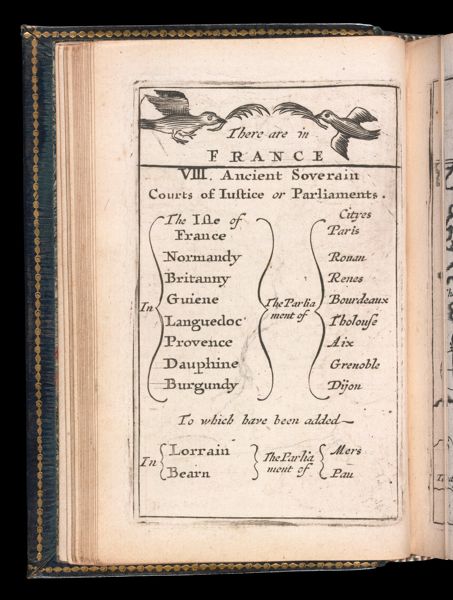 There are in
FRANCE
VIII. Ancient Soverain
Courts of Iustice or Parliaments.
Cityes
In
The Isle of
France
Normandy
Britanny
Guiene
Languedoc
Provence
Dauphine
Burgundy
The Parlia
ment of
Paris
Rouan
Renes
Bourdeaux
Tholouse
Aix
Grenoble
Dijon
To which have been added
In
Lorrain
Bearn
The Parlia
ment of
Mers
Pau